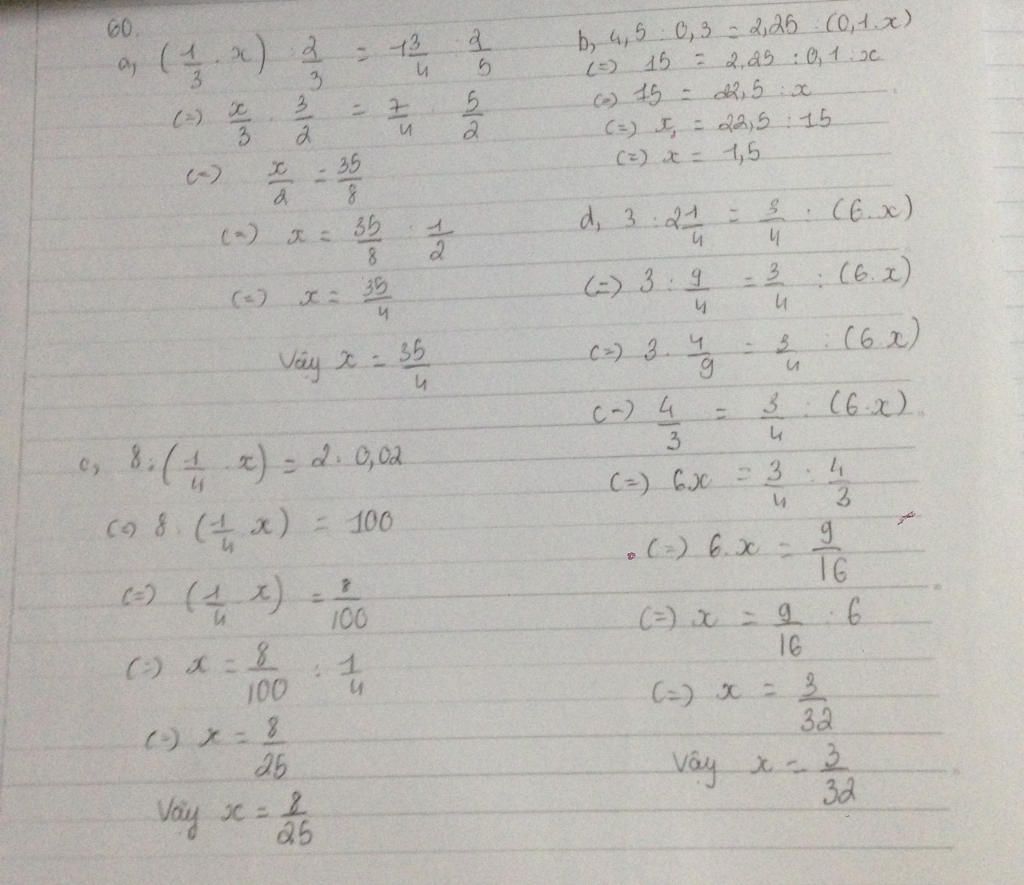 60.
a, (1/3 . x) : 2/3 = 1 3/4 : 2/5
(=) x/3 . 3/2 = 7/4 . 5/2
(=) x/2 = 35/8
(=) x = 35/8 : 1/2
(=) x = 35/4
Vậy x = 35/4
c, 8 : (1/4 . x) = 2 : 0,02
(=) 8 : (1/4 x) = 100
(=) (1/4 x) = 8/100
(=) x = 8/100 : 1/4
(=) x = 8/25
Vậy x = 8/25
b, 4,5 : 0,3 = 2,25 : (0,1 . x)
(=) 15 = 2,25 : 0,1 . x
(=) 15 = 22,5 : x
(=) x = 22,5 : 15
(=) x = 1,5
d, 3 : 2 1/4 = 3/4 : (6.x)
(=) 3 : 9/4 = 3/4 : (6.x)
(=) 3 . 4/9 = 3/4 : (6.x)
(=) 4/3 = 3/4 : (6.x)
(=) 6x = 3/4 : 4/3
(=) 6.x = 9/16
(=) x = 9/16 : 6
(=) x = 3/32
Vậy x = 3/32